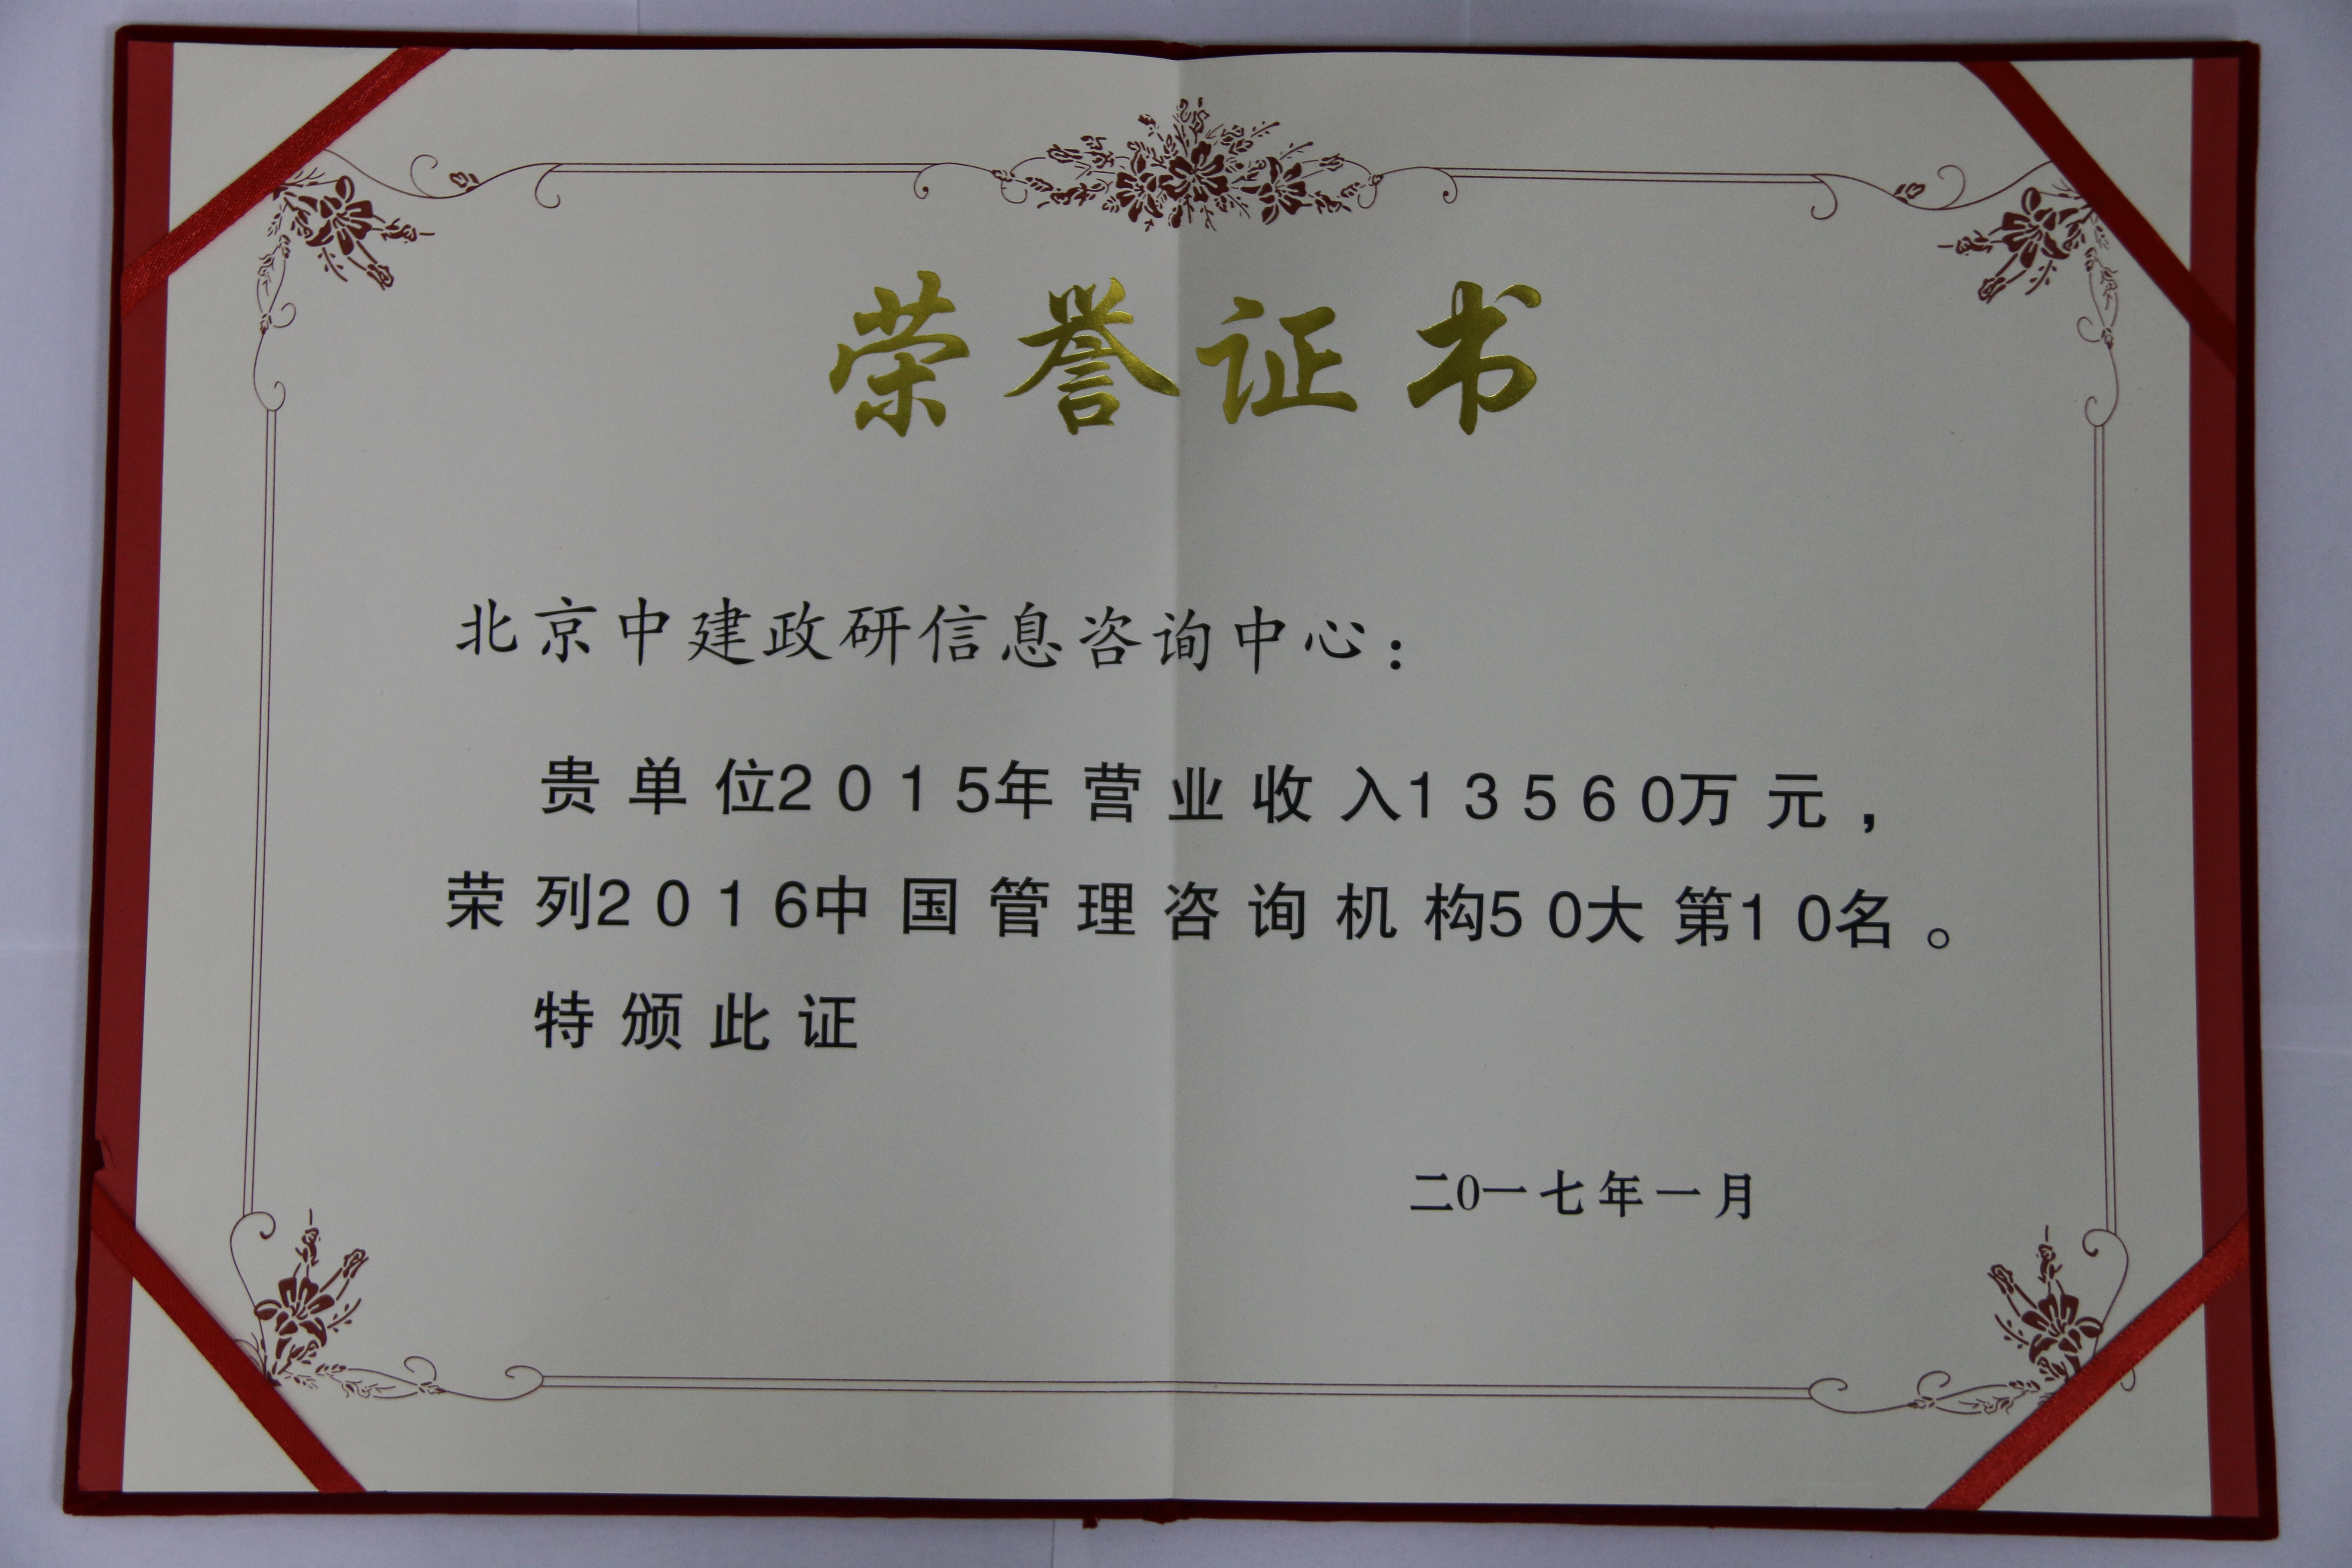 荣誉证书
北京中建政研信息咨询中心：
贵单位2015年营业收入13560万元，
荣列2016中国管理咨询机构50大第10名。
特颁此证
二0一七年一月